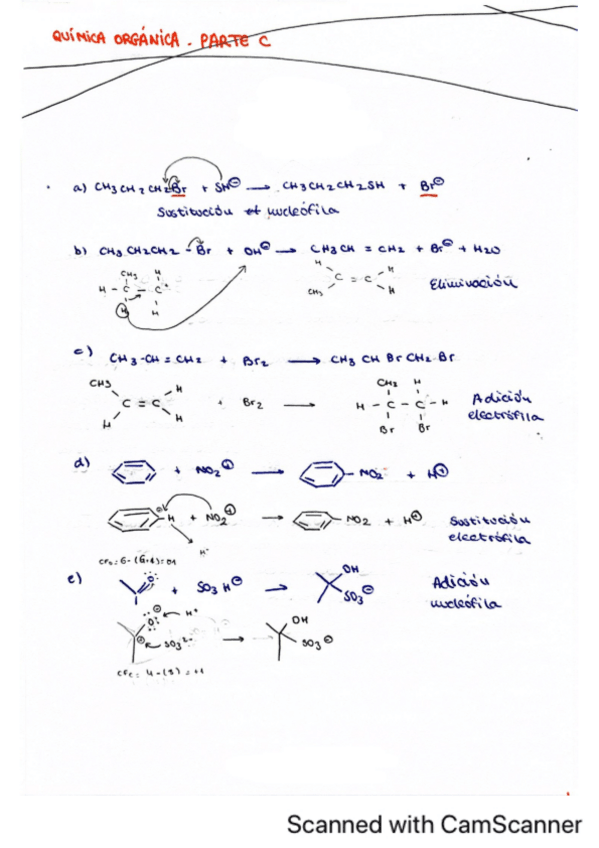 QUÍMICA ORGÁNICA. PARTE C
a) CH3CH2CH2Br + SH⊖ → CH3CH2CH2SH + Br⊖
Sustitución nucleófila
b) CH3CH2CH2-Br + OH⊖ → CH3CH = CH2 + Br⊖ + H2O
CH3 H
H - C - C+
H H
H H
C = C
CH3 H
Eliminación
c) CH3-CH = CH2 + Br2 → CH3 CH Br CH2 Br
CH3 H
C = C + Br2 →
H H
CH3 H
H - C - C - H
Br Br
Adición
electrófila
d) + NO2⊕ → - NO2 + H⊕
⊕ H + NO2⊕ → - NO2 + H⊕
H+
Sustitución
electrófila
e) O + SO3H⊖ → OH
SO3⊖
Adición
nucleófila
O⊖ H+
⊕ SO3²⁻ → OH
SO3⊖
CFC = 4 - (3) = +1
Scanned with CamScanner